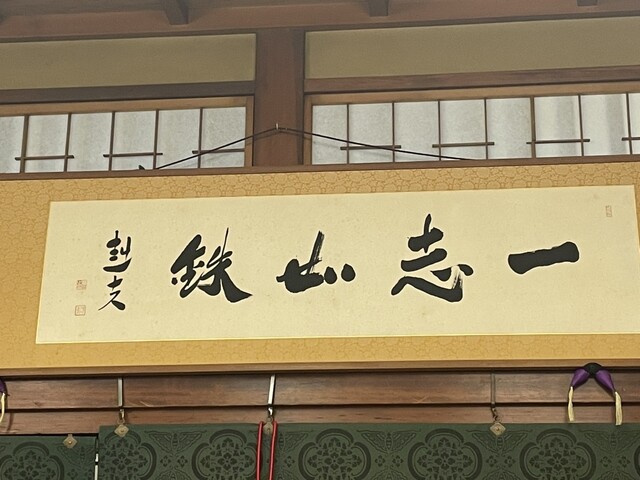 一志如鉄